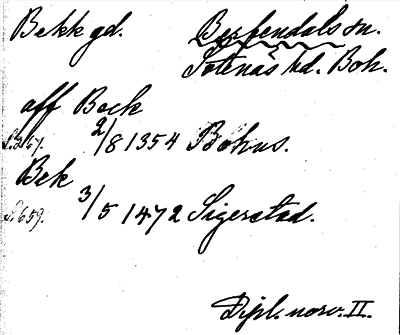 Bekk gd. Berfendals sn.
Sotenäs hd. Boh.
aff Beck
S. 267. 2/8 1354 Bohus.
Bek
S. 659. 3/5 1472 Sigerstad.
Dipl. norv. II.